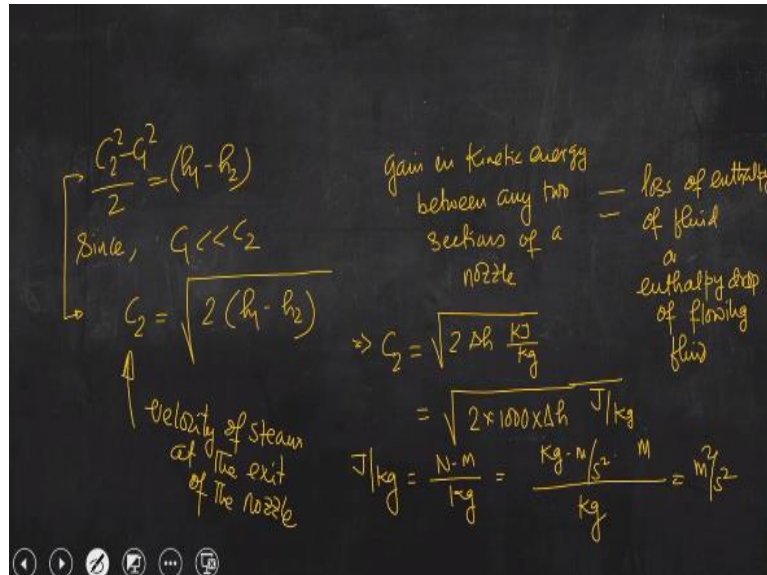 C₂² - C₁² / 2 = (h₁ - h₂)
Since, C₁ << C₂
C₂ = √2 (h₁ - h₂)
velocity of steam
at the exit
of the nozzle
Gain in kinetic energy
between any two
sections of a
nozzle
=
loss of enthalpy
of fluid
or
enthalpy drop
of flowing
fluid
=> C₂ = √2 Δh KJ/kg
= √2 × 1000 × Δh J/kg
J/kg = N-M/kg = Kg · m/s² · M/kg = m²/s²